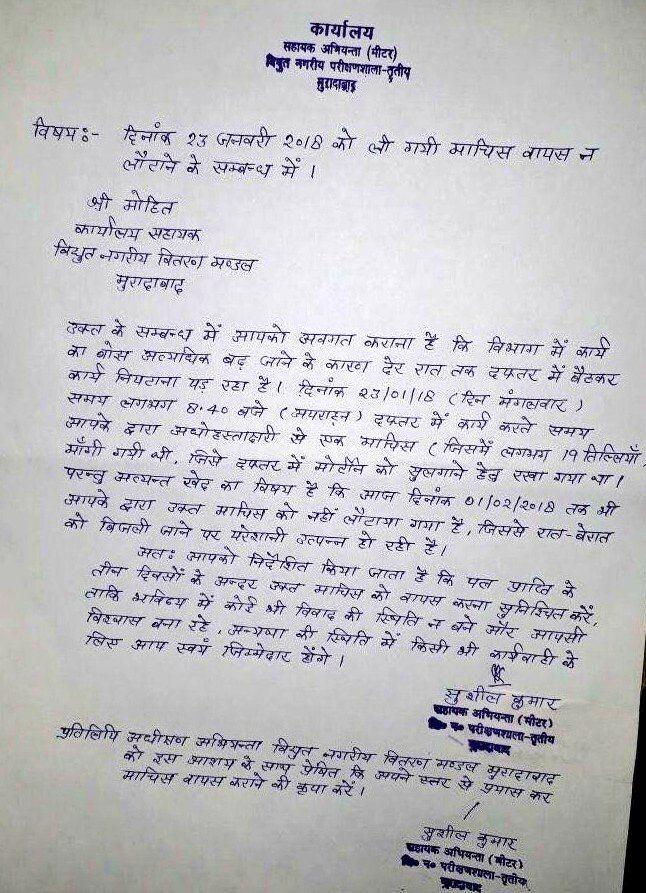 कार्यालय
सहायक अभियन्ता (मीटर)
विद्युत नगरीय परीक्षणशाला-तृतीय
मुरादाबाद
विषयः- दिनांक 23 जनवरी 2018 को ली गयी माचिस वापस न
लौटाने के सम्बन्ध में ।
श्री मोहित
कार्यालय सहायक
विद्युत नगरीय वितरण मण्डल
मुरादाबाद
उक्त के सम्बन्ध में आपको अवगत कराना है कि विभाग में कार्य
का बोस अत्यधिक बढ़ जाने के कारण देर रात तक दफ्तर में बैठकर
कार्य निपटाना पड़ रहा है। दिनांक 23/01/18 (दिन मंगलवार)
समय लगभग 8.40 बजे (अपराह्न) दफ्तर में कार्य करते समय
आपके द्वारा अधोहस्ताक्षरी से एक माचिस (जिसमें लगभग 19 तिल्लियाँ)
माँगी गयी थी, जिसे दफ्तर में मोर्टीन को सुलगाने हेतु रखा गया था।
परन्तु अत्यन्त खेद का विषय है कि आज दिनांक 01/02/2018 तक भी
आपके द्वारा उक्त माचिस को नहीं लौटाया गया है, जिससे रात-बेरात
को बिजली जाने पर परेशानी उत्पन्न हो रही है।
अतः आपको निर्देशित किया जाता है कि पत्र प्राप्ति के
तीन दिवसों के अन्दर उक्त माचिस को वापस करना सुनिश्चित करें,
ताकि भविष्य में कोई भी विवाद की स्थिति न बने और आपसी
विश्वास बना रहे, अन्यथा की स्थिति में किसी भी कार्यवाही के
लिए आप स्वयं जिम्मेदार होंगे।
सुशील कुमार
सहायक अभियन्ता (मीटर)
परीक्षणशाला-तृतीय
मुरादाबाद
प्रतिलिपि अधीक्षण अभियन्ता विद्युत नगरीय वितरण मण्डल मुरादाबाद
को इस आशय के साथ प्रेषित कि अपने स्तर से प्रयास कर
माचिस वापस कराने की कृपा करें।
सुशील कुमार
सहायक अभियन्ता (मीटर)
परीक्षणशाला-तृतीय
मुरादाबाद